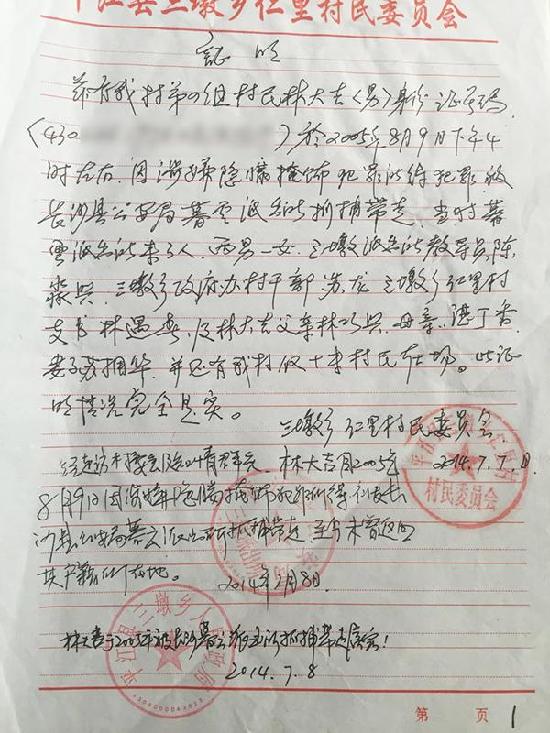 平江县三墩乡仁里村民委员会
证明
兹有我村第 组村民林大吉(男)身份证号码
(430 )於2005年8月9日下午4
时左右,因涉嫌隐瞒掩饰犯罪所得犯罪被
长沙县公安局暮云派出所抓捕带走,当时暮
云派出所来了3人,两男一女,三墩派出所教导员陈
三墩乡政府办村干部 龙 三墩乡仁里村
支书林遇春,及林大吉父亲林 兴,母亲
妻子 并还有我村 十来村民在场。此证
明情况完全是实。
三墩乡仁里村民委员会
2014.7.7日
林大吉 2005年
8月9日因涉嫌隐瞒掩饰犯罪所得 被长
沙县公安局暮云派出所抓捕带走 至今未曾返回
其户籍所在地。
2014年7月8日
林大吉于2005年被长沙暮云派出所抓捕带走属实!
2014.7.8
村民委员会
平江县三墩乡人民政府
第 页 1